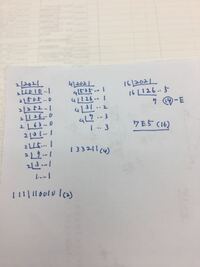 2|2021
2|1010…1
2|505…0
2|252…1
2|126…0
2|63…0
2|31…1
2|15…1
2|7…1
2|3…1
1…1
11111100101(2)
4|2021
4|505…1
4|126…1
4|31…2
4|7…3
1…3
133211(4)
16|2021
16|126…5
7 (14)-E
7E5(16)